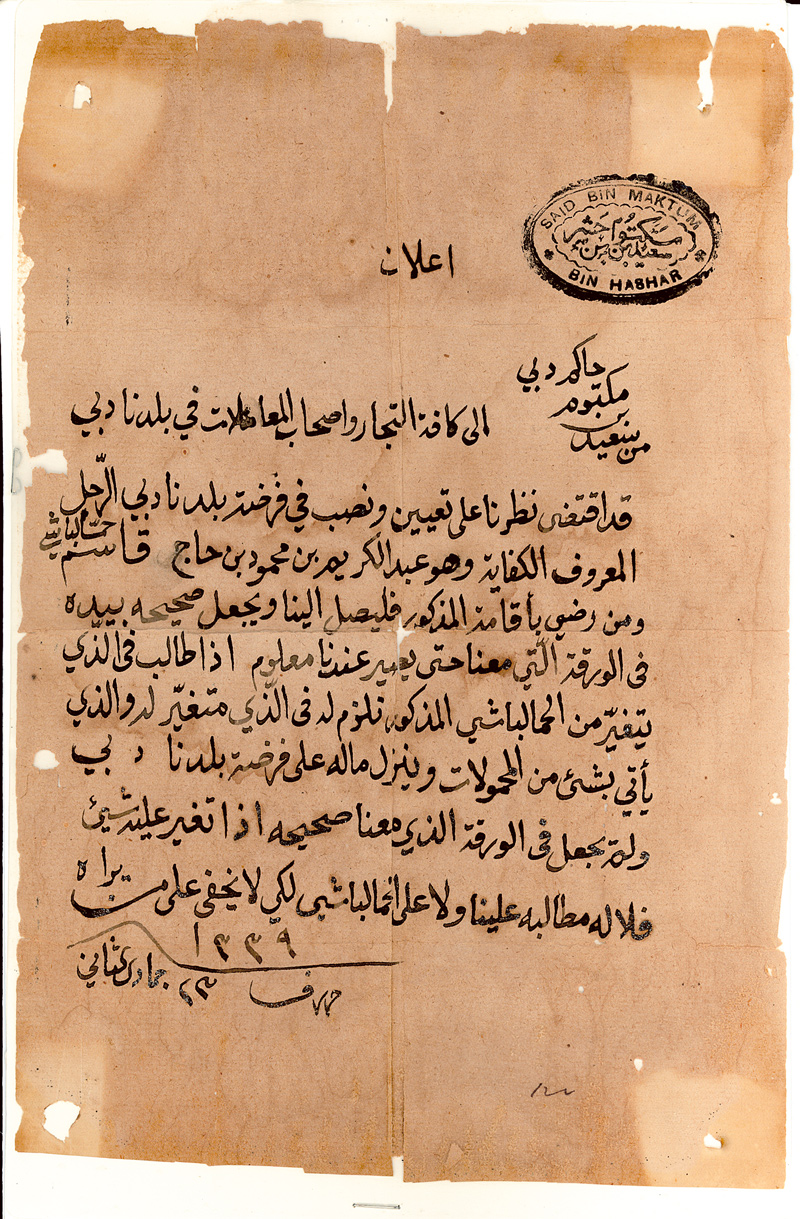 SAID BIN MAKTUM
مكتوم حشر
سعيد بن بن
BIN HASHAR
اعلان
من سعيد بن مكتوم حاكم دبي
الى كافة التجار واصحاب المعاملات في بلدنا دبي
قد اقتضى نظرنا على تعيين ونصب في فرضة بلدنا دبي الرّجل
المعروف الكفاية وهو عبد الكريم بن محمود بن حاج قاسم حمّالباشي
ومن رضي بأقامة المذكور فليصل الينا ويجعل صحيحه بيده
فى الورقة الّتي معنا حتى يصير عندنا معلوم اذا طالب فى الّذي
يتغيّر من الحمالباشي المذكور نلزم له فى الّذي متغيّر له والذي
يأتي بشئ من المحمولات وينزل ماله على فرضة بلدنا دبي
ولم يجعل فى الورقة الذي معنا صحيحه اذا تغير عليه شيئ
فلا له مطالبه علينا ولا على الحمالباشي لكي لا يخفى على من يراه
١٣٣٩
حرر ف ٢٣ جمادى الثاني